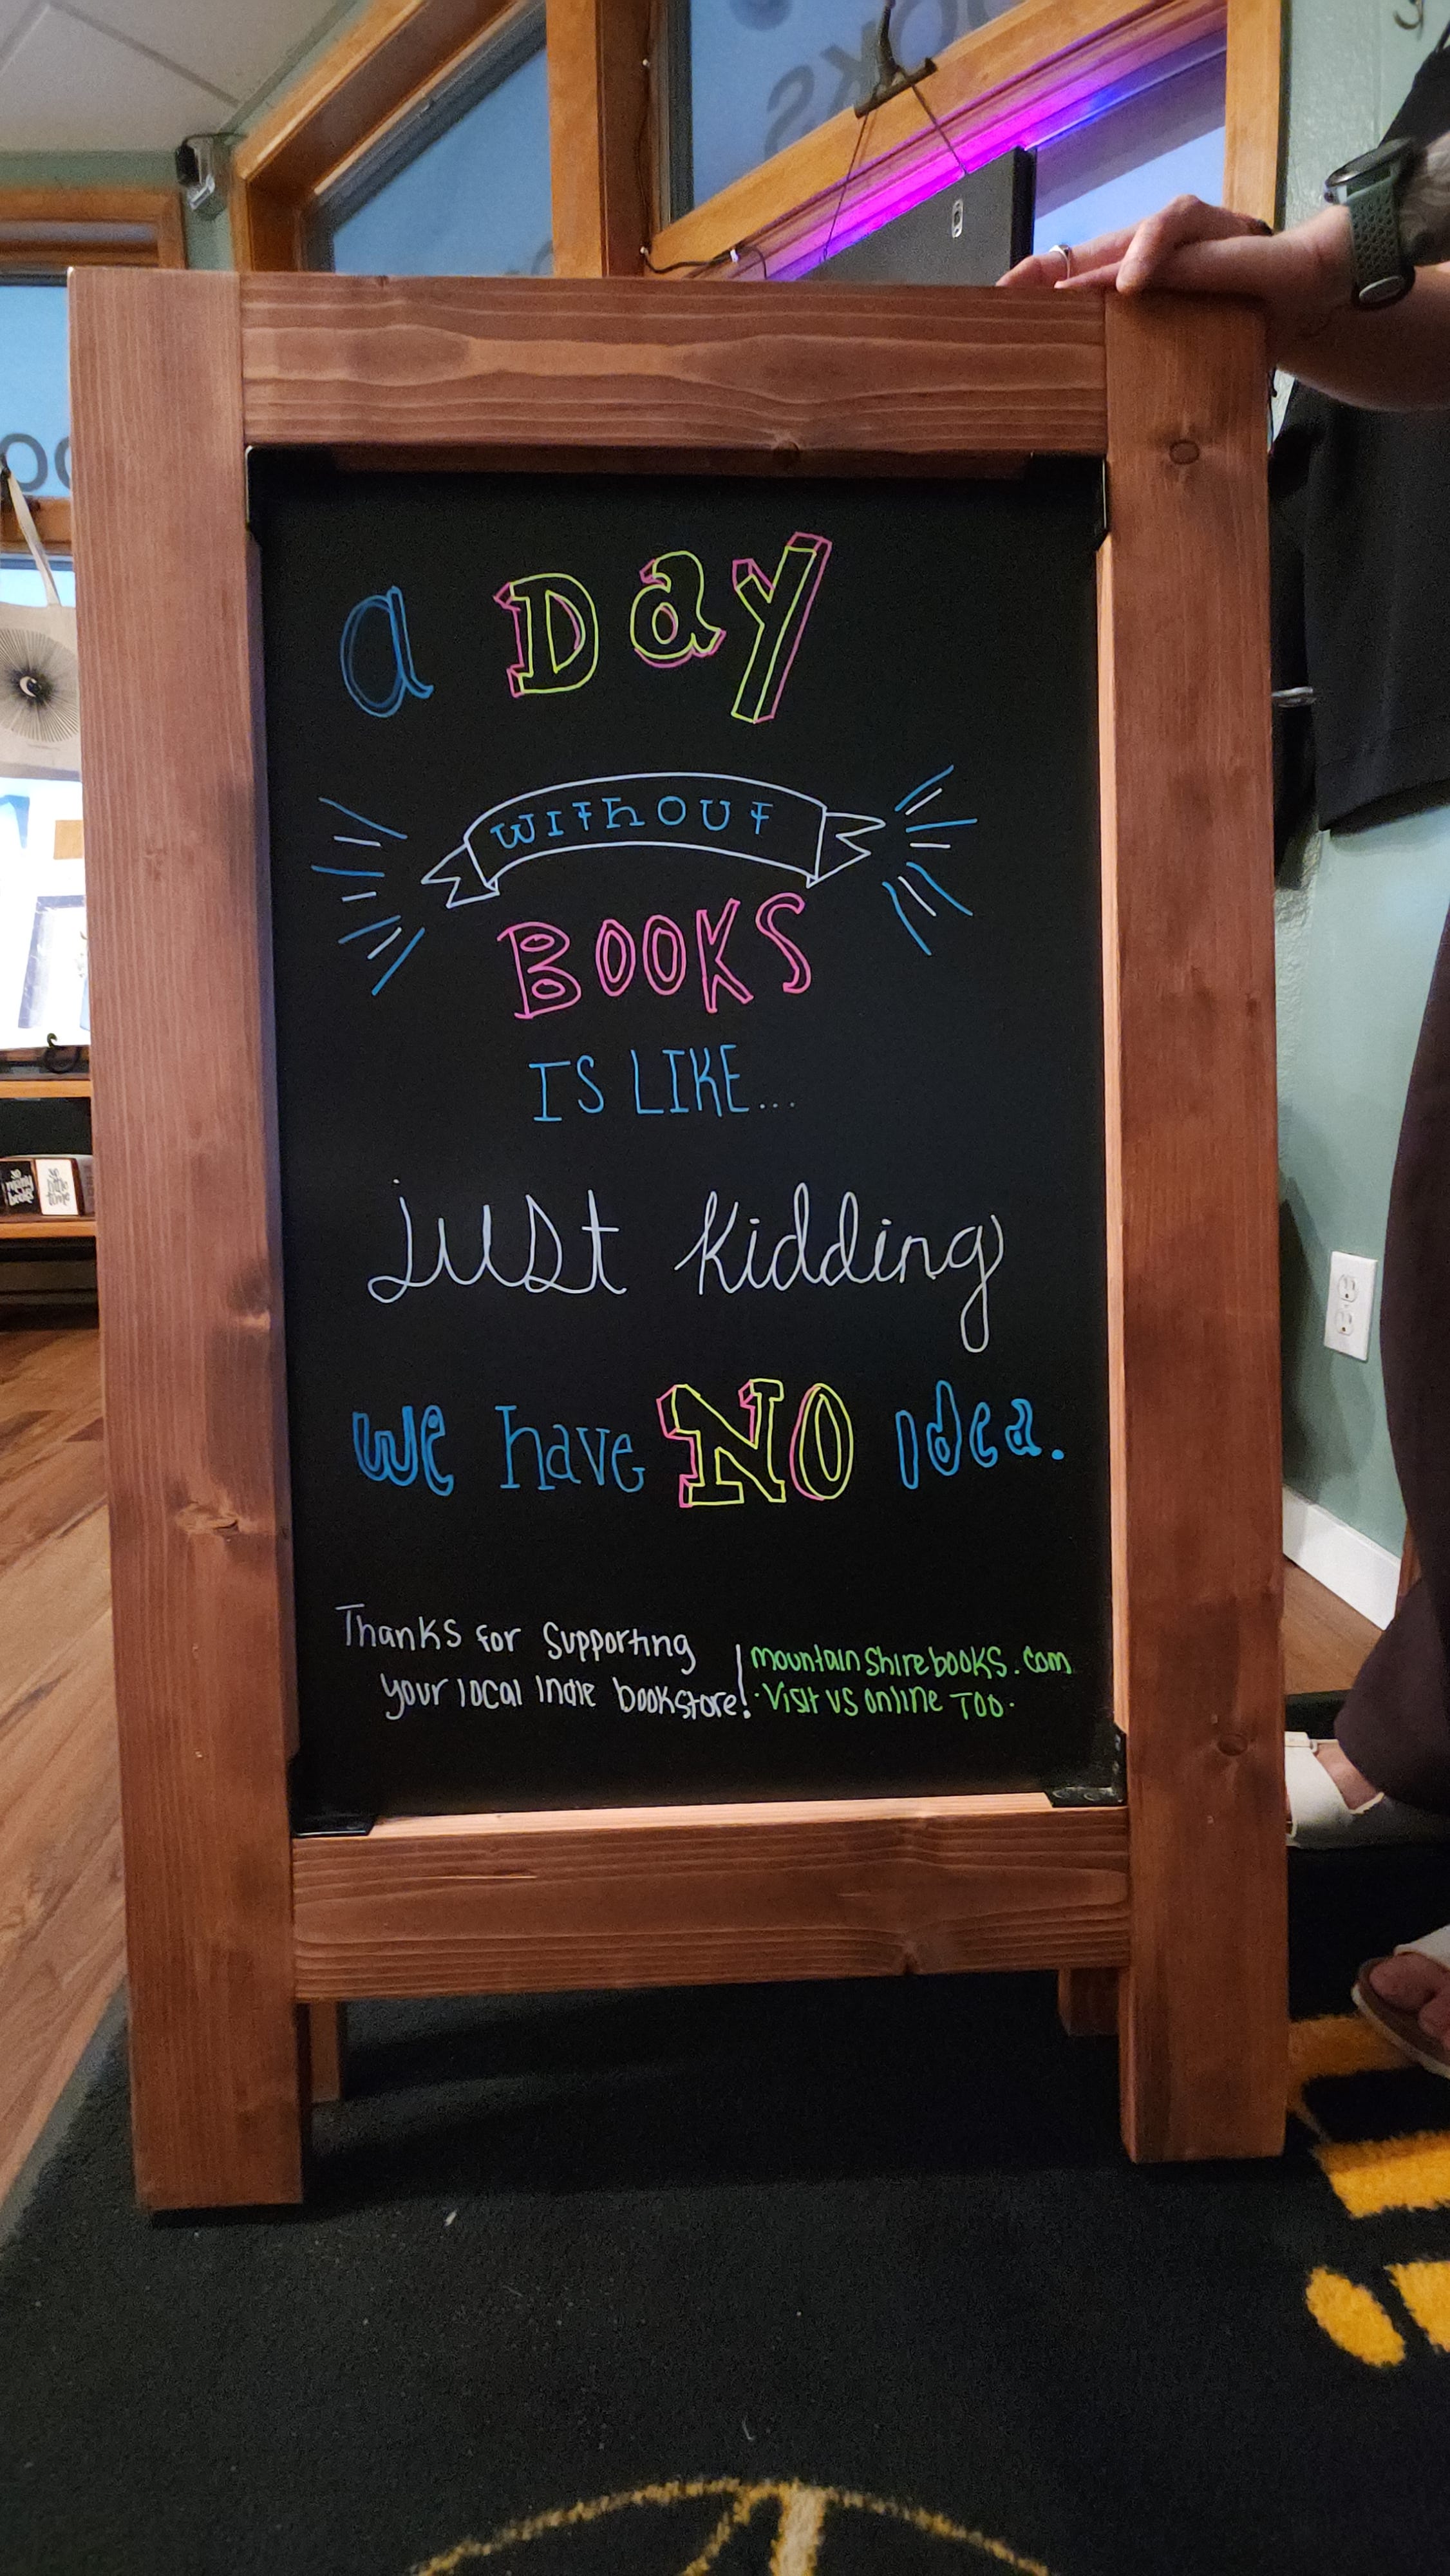 a Day
without
BOOKS
IS LIKE...
just kidding
we have NO idea.
Thanks for supporting
your local indie bookstore!
mountainshirebooks.com
·Visit us online TOO·
so
many
books
so
little
time